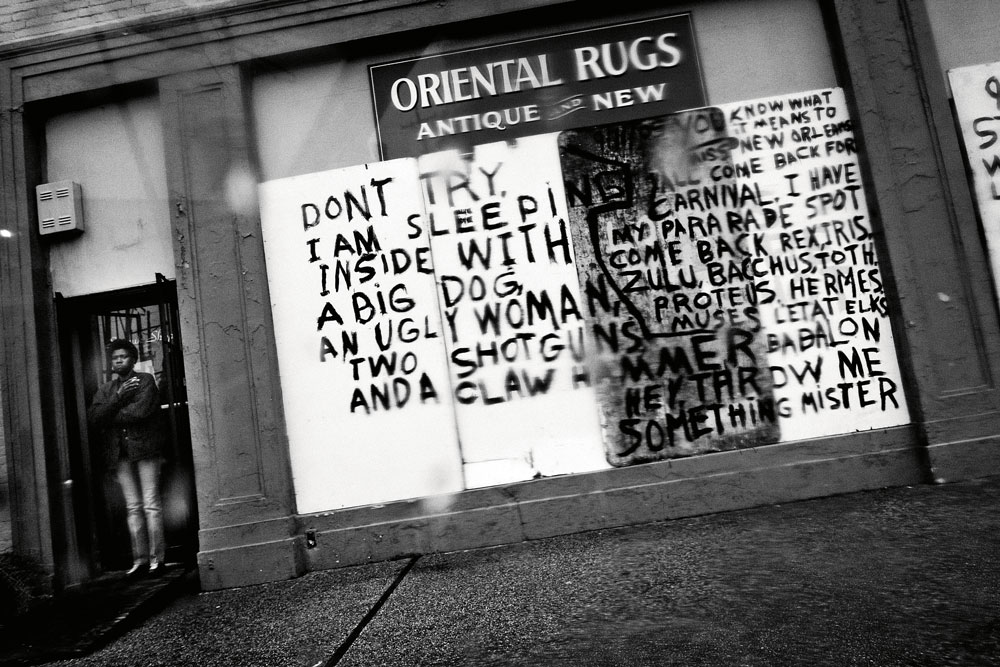 ORIENTAL RUGS
ANTIQUE AND NEW
DONT TRY,
I AM SLEEPING
INSIDE WITH
A BIG DOG,
AN UGLY WOMAN,
TWO SHOTGUNS
AND A CLAW HAMMER
YOU KNOW WHAT
IT MEANS TO
MISS NEW ORLEANS
ALL COME BACK FOR
CARNINAL, I HAVE
MY PARARADE SPOT
COME BACK REX, IRIS,
ZULU, BACCHUS, TOTH,
PROTEUS, HERMES,
MUSES LETAT ELKS
BABALON
HEY, THROW ME
SOMETHING MISTER